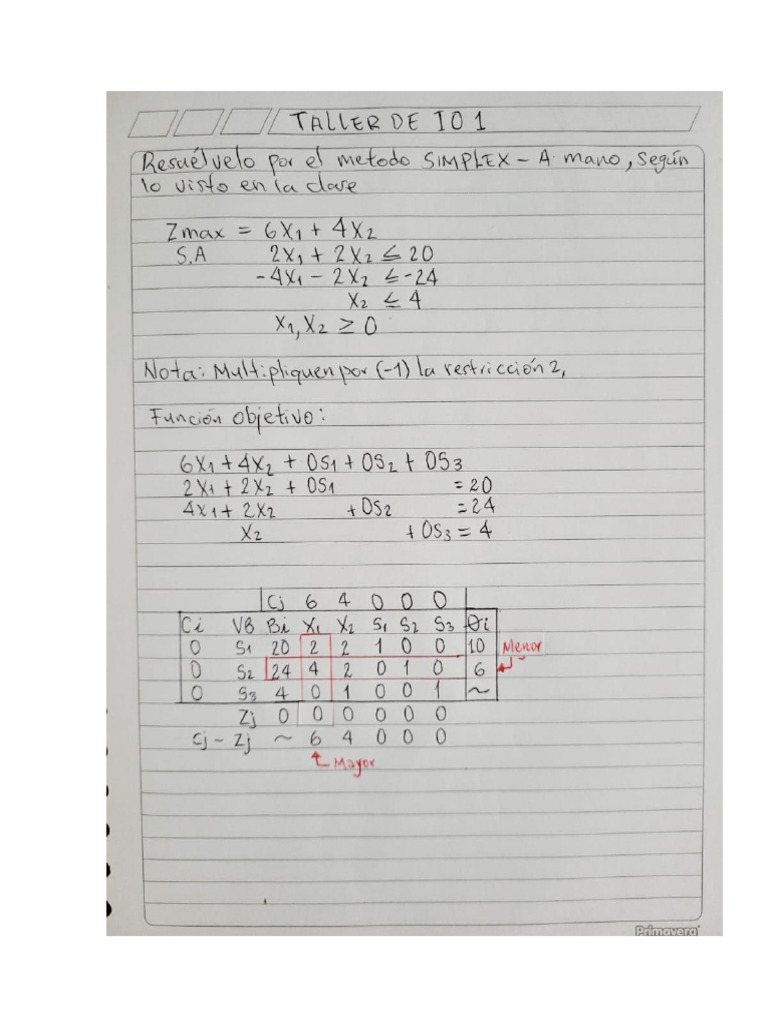 TALLER DE IO 1
Resuélvelo por el metodo SIMPLEX - A mano, según
lo visto en la clase
Zmax = 6X1 + 4X2
S.A 2X1 + 2X2 ≤ 20
-4X1 - 2X2 ≤ -24
X2 ≤ 4
X1, X2 ≥ 0
Nota: Multipliquen por (-1) la restricción 2,
Función objetivo:
6X1 + 4X2 + 0S1 + 0S2 + 0S3
2X1 + 2X2 + 0S1 = 20
4X1 + 2X2 + 0S2 = 24
X2 + 0S3 = 4
Cj 6 4 0 0 0
Ci VB Bi X1 X2 S1 S2 S3 θi
0 S1 20 2 2 1 0 0 10 Menor
0 S2 24 4 2 0 1 0 6
0 S3 4 0 1 0 0 1 ~
Zj 0 0 0 0 0 0
Cj - Zj ~ 6 4 0 0 0
Mayor
Primavera